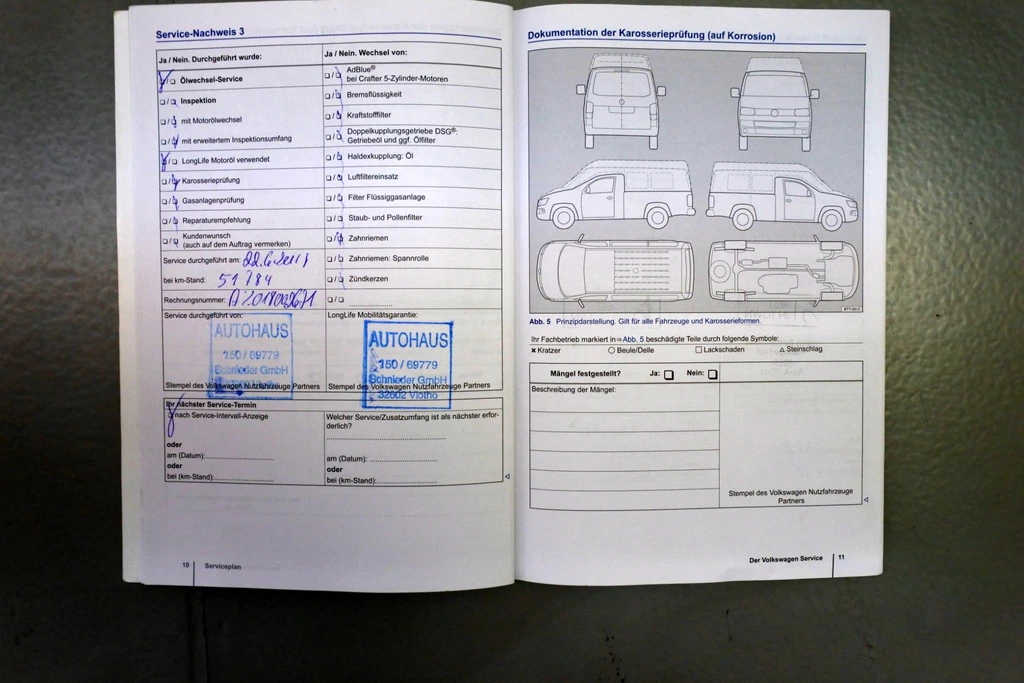 Service-Nachweis 3
Ja / Nein. Durchgeführt wurde:
Ölwechsel-Service
Inspektion
mit Motorölwechsel
mit erweitertem Inspektionsumfang
LongLife Motoröl verwendet
Karosserieprüfung
Gasanlagenprüfung
Reparaturempfehlung
Kundenwunsch
(auch auf dem Auftrag vermerken)
Service durchgeführt am:
bei km-Stand: 51784
Rechnungsnummer:
Service durchgeführt von:
AUTOHAUS
150 / 69779
Schnieder GmbH
Stempel des Volkswagen Nutzfahrzeuge Partners
Ja / Nein. Wechsel von:
AdBlue®
bei Crafter 5-Zylinder-Motoren
Bremsflüssigkeit
Kraftstofffilter
Doppelkupplungsgetriebe DSG®:
Getriebeöl und ggf. Ölfilter
Haldexkupplung: Öl
Luftfiltereinsatz
Filter Flüssiggasanlage
Staub- und Pollenfilter
Zahnriemen
Zahnriemen: Spannrolle
Zündkerzen
LongLife Mobilitätsgarantie:
AUTOHAUS
150 / 69779
Schnieder GmbH
Stempel des Volkswagen Nutzfahrzeuge Partners
32602 Vlotho
Ihr nächster Service-Termin
nach Service-Intervall-Anzeige
oder
am (Datum):
oder
bei (km-Stand):
Welcher Service/Zusatzumfang ist als nächster erfor-
derlich?
am (Datum):
oder
bei (km-Stand):
10 Serviceplan
Dokumentation der Karosserieprüfung (auf Korrosion)
Abb. 5 Prinzipdarstellung. Gilt für alle Fahrzeuge und Karosserieformen.
Ihr Fachbetrieb markiert in ⇒ Abb. 5 beschädigte Teile durch folgende Symbole:
× Kratzer ○ Beule/Delle □ Lackschaden △ Steinschlag
Mängel festgestellt? Ja: Nein:
Beschreibung der Mängel:
Stempel des Volkswagen Nutzfahrzeuge
Partners
Der Volkswagen Service 11